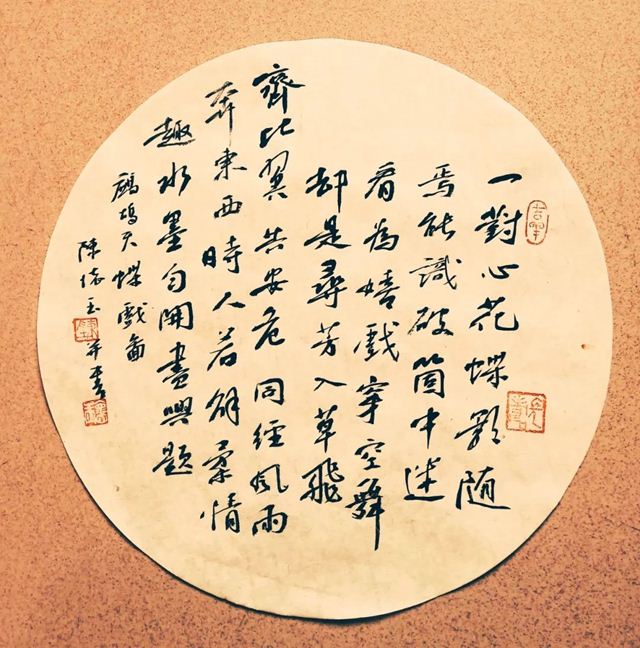 一對心花蝶影随
焉能識破箇中迷
看為嬉戲穿空舞
却是尋芳入草飛
齊比翼共安危同經風雨
奔東西時人若解柔情
趣水墨勻開畫興題
鷓鴣天蝶戲圖
陳玉並書